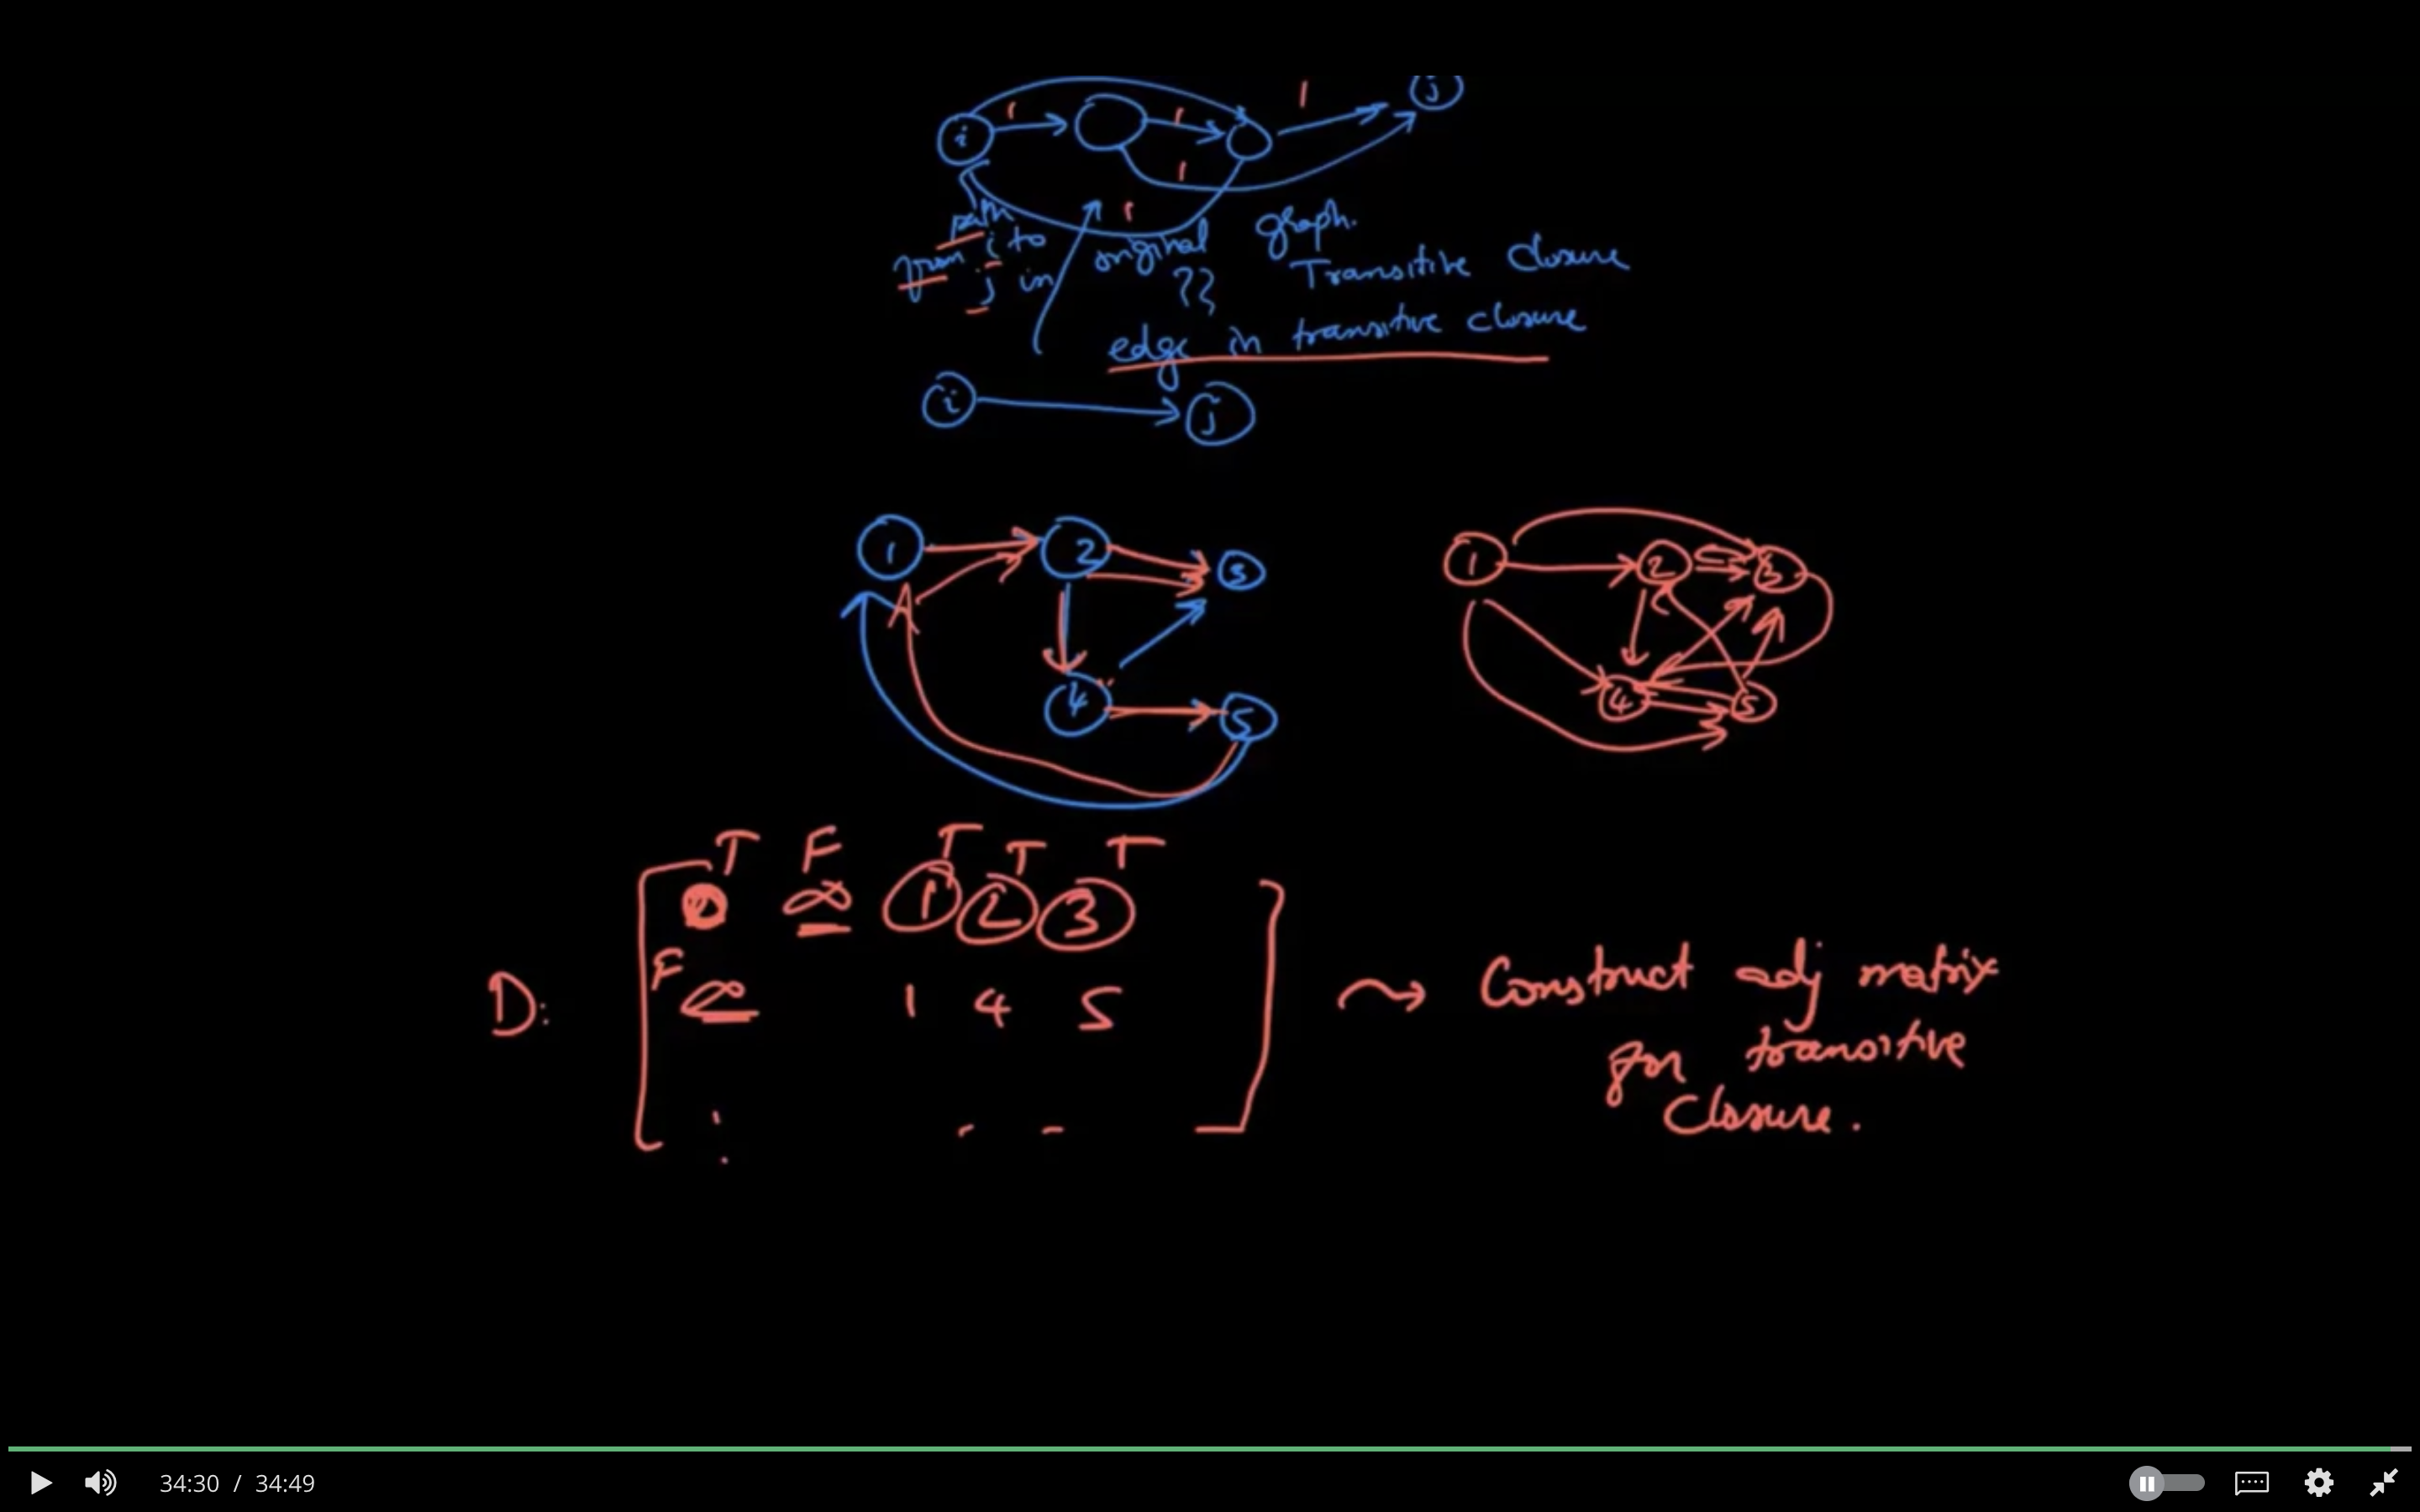 1 1 1 j
i
1
1
path
from i to
j in
original graph.
??
Transitive Closure
edge in transitive closure
i j
1 2 3
4 5
1 2 3
4 5
T F T T T
0 ∞ 1 2 3
F
D: ∞ 1 4 5
Construct adj matrix
for transitive
Closure.
34:30 / 34:49